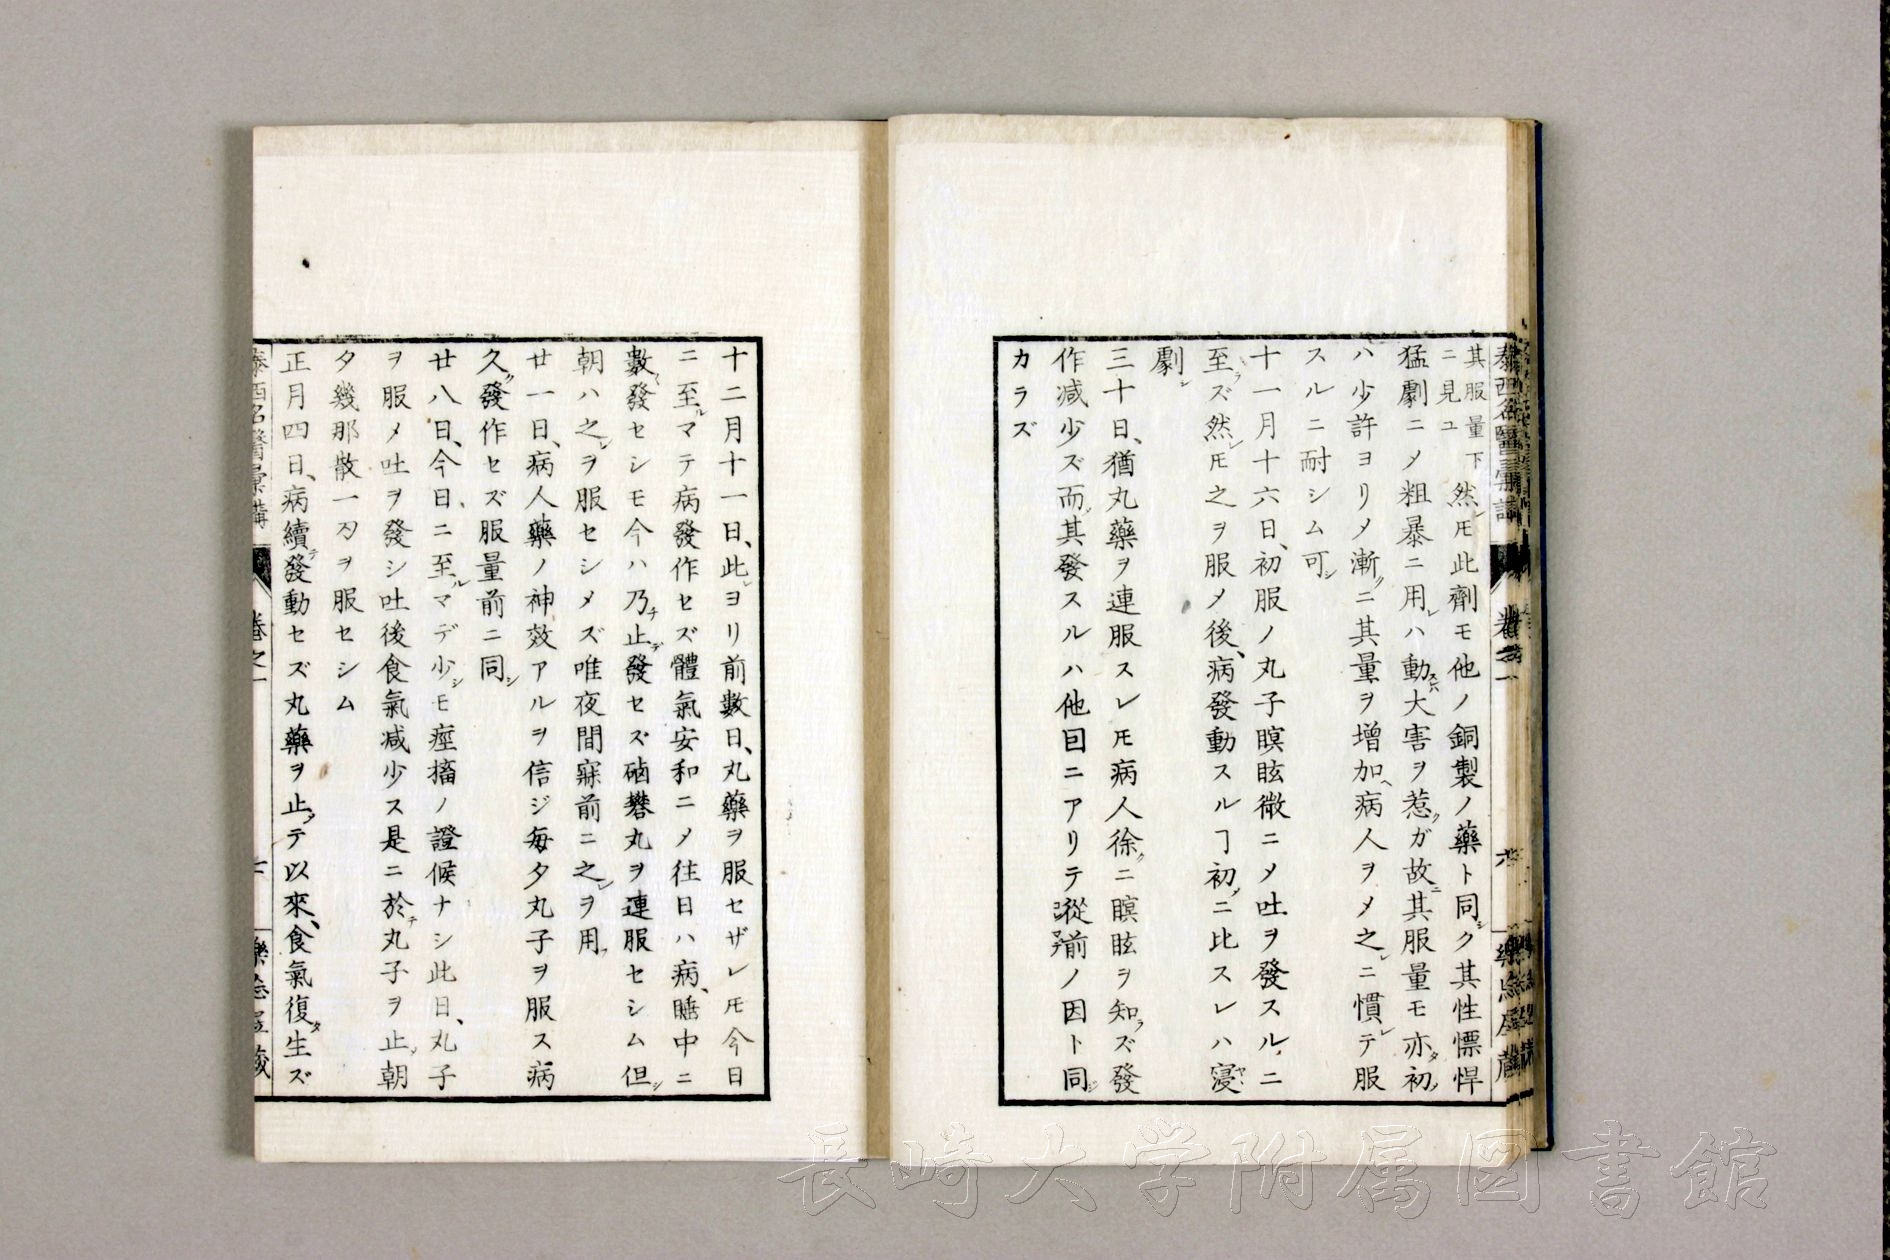 泰西名醫彙講
卷之一
六
其服量下
ニ見ユ
然レ𪜈此劑モ他ノ銅製ノ藥ト同シク其性慓悍
猛劇ニ〆粗暴ニ用レハ動スレハ大害ヲ惹クガ故ニ其服量モ亦タ初メ
ハ少許ヨリ〆漸クニ其量ヲ增加ヘ病人ヲ〆之レニ慣レテ服
スルニ耐シム可シ
十一月十六日、初服ノ丸子瞑眩微ニ〆吐ヲ發スルニ
至ラズ然レ𪜈之ヲ服〆後、病發動スルヿ初メニ比スレハ寖ヤヽ
劇シ
三十日、猶丸藥ヲ連服スレ𪜈病人徐クニ瞑眩ヲ知ラズ發
作減少ズ而ノ其發スルハ他因ニアリテ從前ノ因ト同シ
カラズ
十二月十一日、此レヨリ前數日、丸藥ヲ服セザレ𪜈今日
ニ至ルマテ病發作セズ體氣安和ニ〆往日ハ病、睡中ニ
數〱發セシモ今ハ乃チ止デ發セズ硇礬丸ヲ連服セシム但シ
朝ハ之レヲ服セシメズ唯夜間寐前ニ之レヲ用フ
廿一日、病人藥ノ神效アルヲ信ジ每夕丸子ヲ服ス病
久ク發作セズ服量前ニ同シ
廿八日、今日、ニ至ルマデ少シモ痙搐ノ證候ナシ此日、丸子
ヲ服〆吐ヲ發シ吐後食氣減少ス是ニ於テ丸子ヲ止メ朝
夕幾那散一刄ヲ服セシム
正月四日、病續テ發動セズ丸藥ヲ止メテ以來、食氣復タ生ズ
泰西名醫彙講
卷之一
七
長崎大学附属図書館